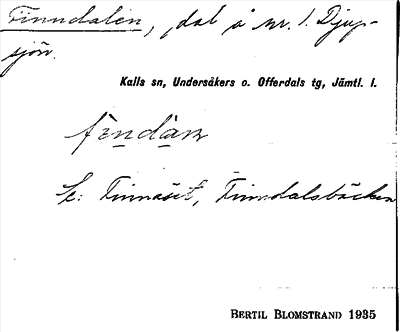 Finndalen, dal å nr. 1. Djup-
sjön.
Kalls sn, Undersåkers o. Offerdals tg, Jämtl. l.
fìndàn
Se: Finnäset, Finndalsbäcken
BERTIL BLOMSTRAND 1935